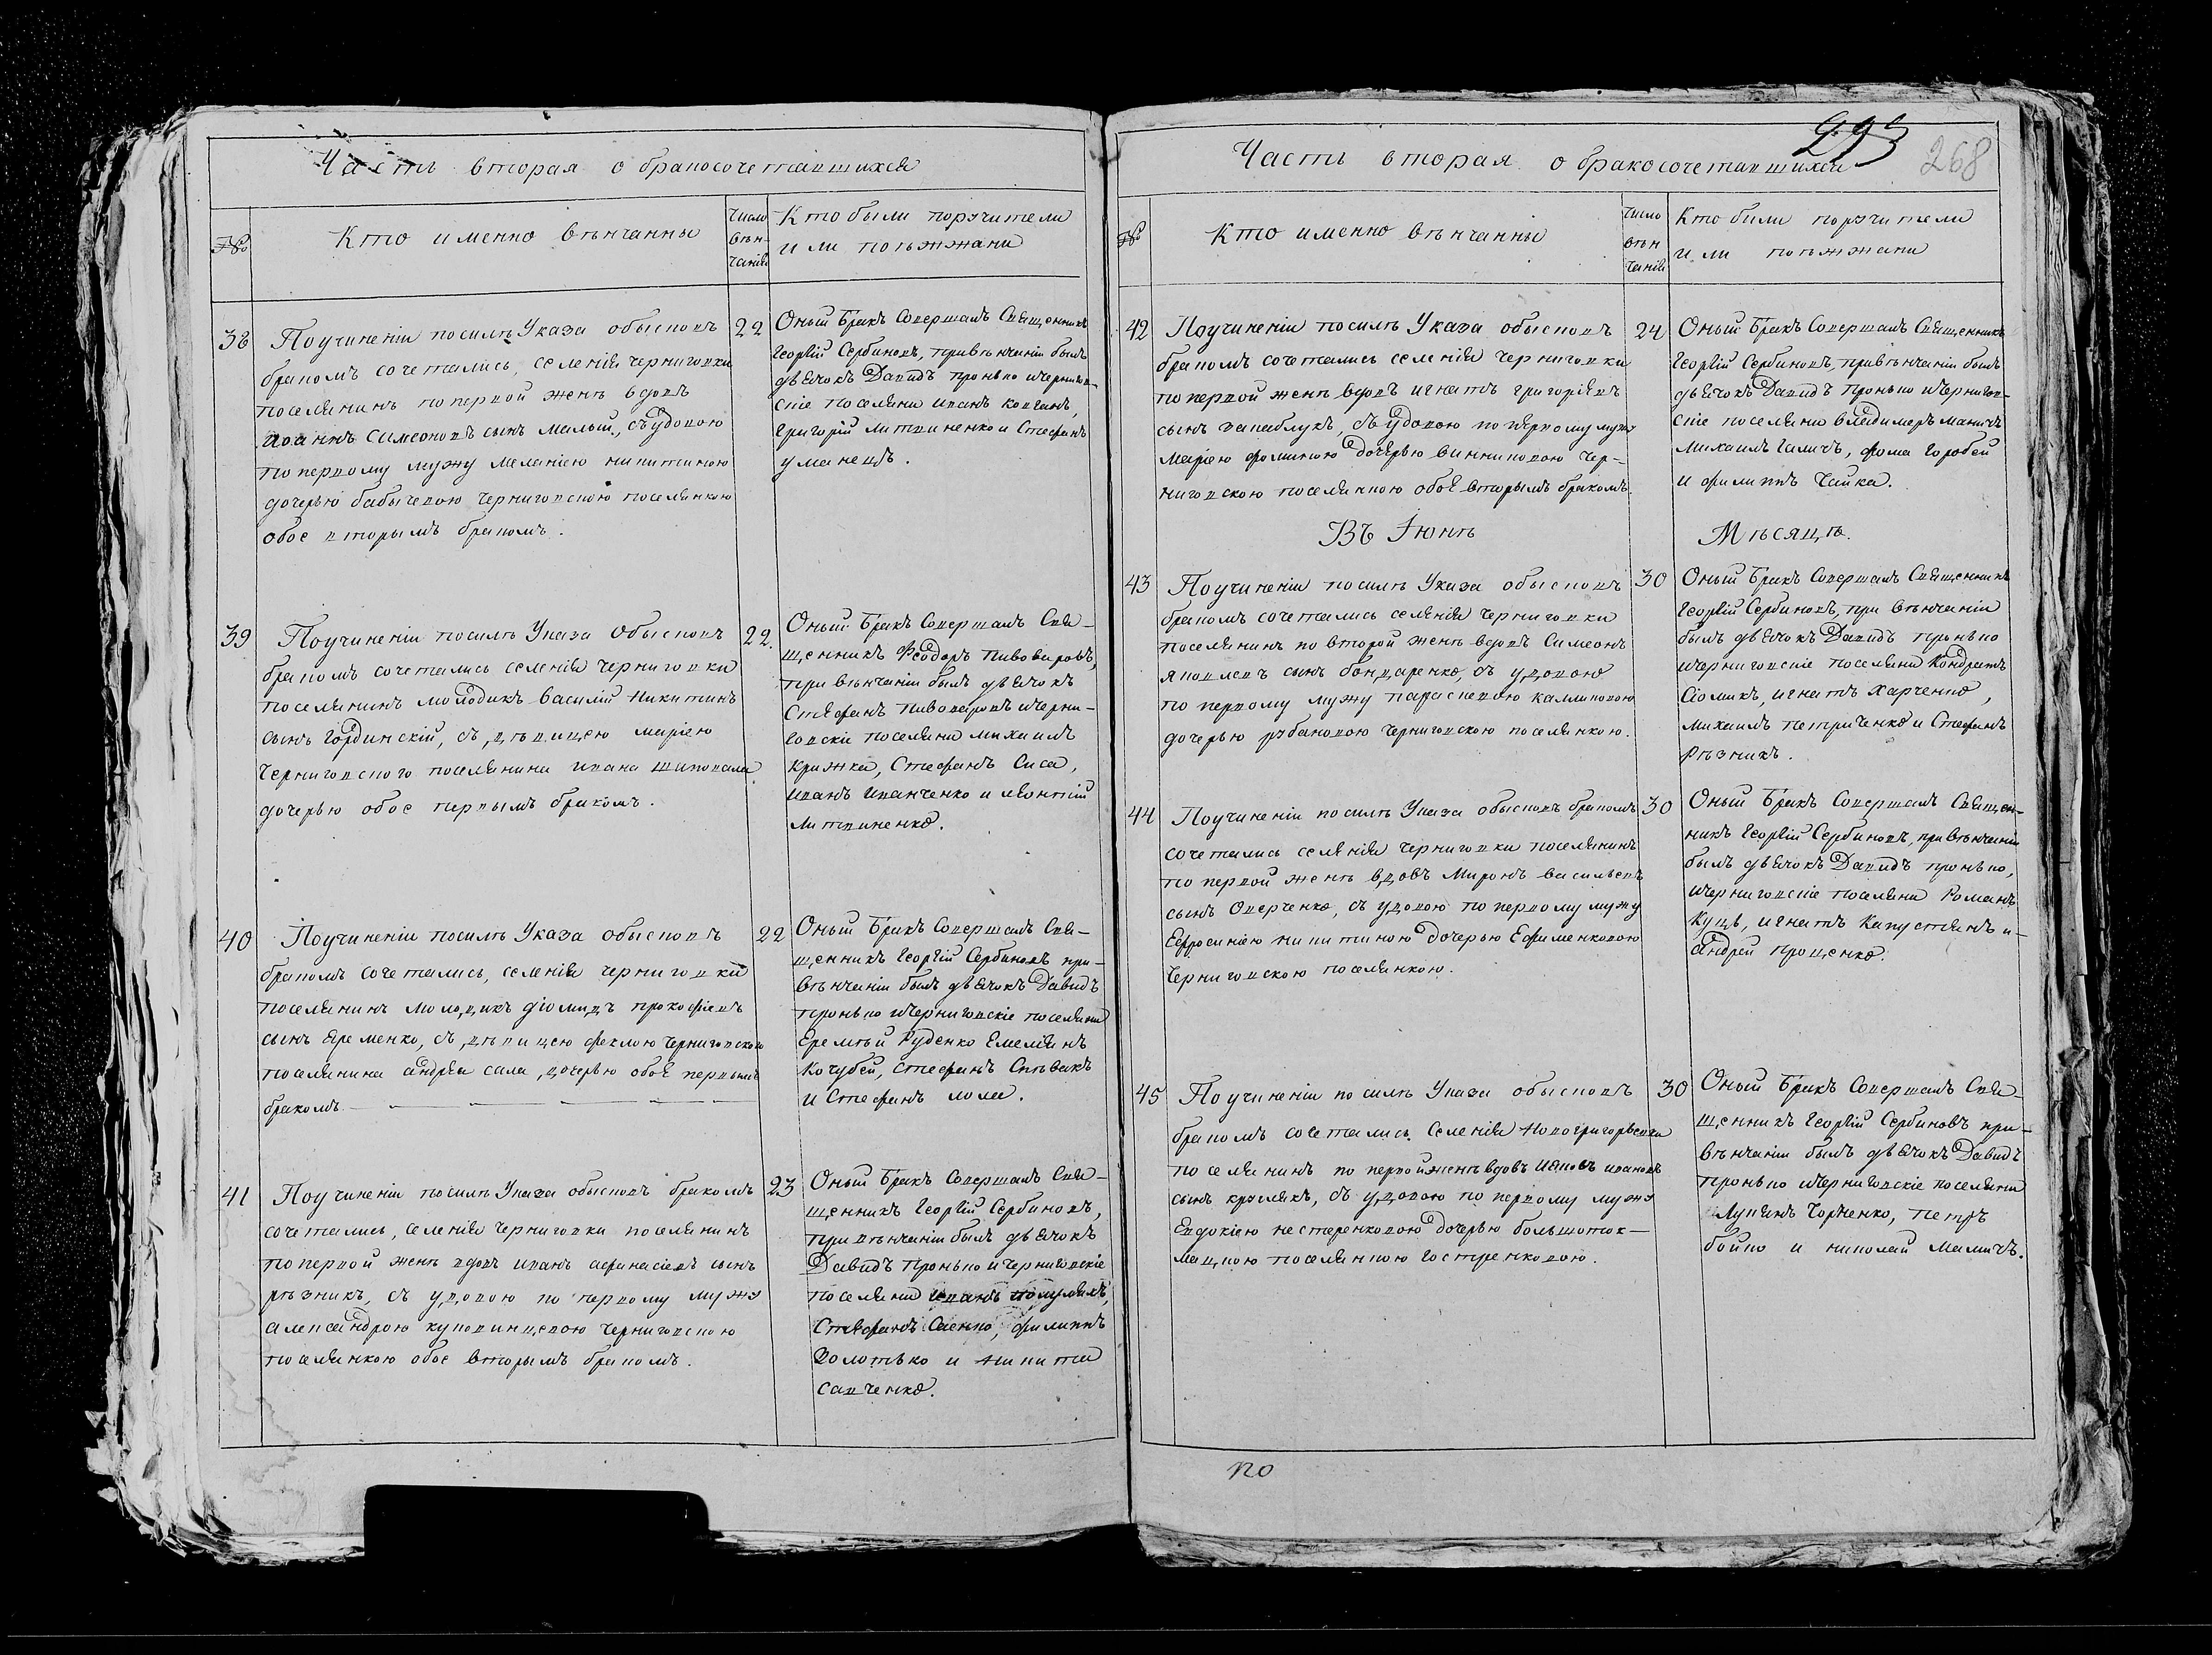 Часть вторая о бракосочетавшихся
№
Кто именно вѣнчанны
Число
вѣн-
чанія
Кто были поручители
или поѣжжани
38
По учиненіи по силѣ Указа обысковъ
бракомъ сочетались, селенія Черниговки
поселянинъ по первой женѣ вдовъ
Иоаннъ Симеоновъ сынъ Малый, съ удовою
по первому мужу Меланіею Никитиною
дочерью Бабычевою Черниговскою поселянкою
обое вторымъ бракомъ.
22
Оный Бракъ Совершалъ Священникъ
Георгій Сербиновъ, при вѣнчаніи былъ
дьячокъ Давидъ Пронько и Чернигов-
скіе поселяни Иванъ Ковганъ,
Григорій Литвиненко и Стефанъ
Уманецъ.
39
По учиненіи по силѣ Указа обысковъ
бракомъ сочетались селенія Черниговки
поселянинъ молодикъ Василій Никитинъ
сынъ Гординскій, съ дѣвицею Маріею
Черниговского поселянина Ивана Шаповала
дочерью обое первымъ бракомъ.
22.
Оный Бракъ Совершалъ Свя-
щенникъ Феодоръ Пивоваровъ,
при вѣнчаніи былъ дьячокъ
Стефанъ Пивоваровъ и Черни-
говскіе поселяни Михаилъ
Крижка, Стефанъ Сиса,
Иванъ Иванченко и Леонтій
Литвиненко.
40
По учиненіи по силѣ Указа обысковъ
бракомъ сочетались, селенія Черниговки
поселянинъ молодикъ Діомидъ Прокофіевъ
сынъ Яременко, съ дѣвицею Феклою Черниговского
поселянина Андрея Сала дочерью обое первымъ
бракомъ.
22
Оный Бракъ Совершалъ Свя-
щенникъ Георгій Сербиновъ при-
вѣнчаніи былъ дьячокъ Давидъ
Пронько и Черниговскіе поселяни
Еремѣй Руденко Емеліянъ
Кочубей, Стефанъ Спѣвакъ
и Стефанъ Лола.
41
По учиненіи по силѣ Указа обысковъ бракомъ
сочетались, селенія Черниговки поселянинъ
по первой женѣ вдовъ Иванъ Афанасіевъ сынъ
Рѣзникъ, съ удовою по первому мужу
Александрою Куповинцевою Черниговскою
поселянкою обое вторымъ бракомъ.
23
Оный Бракъ Совершалъ Свя-
щенникъ Георгій Сербиновъ,
при вѣнчаніи былъ дьячокъ
Давидъ Пронько и Черниговскіе
поселяни Иванъ
Стефанъ Саенко, Филиппъ
Золотько и Никита
Савченко.
293
268
Часть вторая о бракосочетавшихся
№
Кто именно вѣнчанны
Число
вѣн
чанія
Кто были поручители
или поѣжжани
42
По учиненіи по силѣ Указа обысковъ
бракомъ сочетались селенія Черниговки
по первой женѣ вдовъ Игнатъ Григоріевъ
сынъ Запаблукъ, съ удовою по первому мужу
Маріею Фоминою дочерью Винниковою Чер-
ниговскою поселянкою обое вторымъ бракомъ.
24
Оный Бракъ Совершалъ Священникъ
Георгій Сербиновъ, при вѣнчаніи былъ
дьячокъ Давидъ Пронько и Чернигов-
скіе поселяни Владимеръ Маничъ
Михаилъ Галичъ, Фома Горобей
и Филиппъ Чайка.
Въ Іюнѣ Мѣсяцѣ.
43
По учиненіи по силѣ Указа обысковъ
бракомъ сочетались селенія Черниговки
поселянинъ по второй женѣ вдовъ Симеонъ
Яковлевъ сынъ Бондаренко, съ удовою
по первому мужу Параскевою Каллиновою
дочерью Рѣбановою Черниговскою поселянкою.
30
Оный Бракъ Совершалъ Священникъ
Георгій Сербиновъ, при вѣнчаніи
былъ дьячокъ Давидъ Пронько
и Черниговскіе поселяни Кондратъ
Сіомикъ, Игнатъ Харченко,
Михаилъ Петриченко и Стефанъ
Рѣзникъ.
44
По учиненіи по силѣ Указа обысковъ бракомъ
сочетались селенія Черниговки поселянинъ
по первой женѣ вдовъ Миронъ Васильевъ
сынъ Оверченко, съ удовою по первому мужу
Евфросиніею Никитиною дочерью Ефименковою
Черниговскою поселянкою.
30
Оный Бракъ Совершалъ Священ-
никъ Георгій Сербиновъ, при вѣнчаніи
былъ дьячокъ Давидъ Пронько,
и Черниговскіе поселяни Романъ
Куцъ, Игнатъ Капустянъ и-
Андрей Проценко.
45
По учиненіи по силѣ Указа обысковъ
бракомъ сочетались Селенія Новогригорьевки
поселянинъ по первой женѣ вдовъ Иаковъ Ивановъ
сынъ Круглякъ, съ удовою по первому мужу
Евдокіею Нестеренковою дочерью Большоток-
мацкою поселянкою Гостренковою.
30
Оный Бракъ Совершалъ Свя-
щенникъ Георгій Сербиновъ при-
вѣнчаніи былъ дьячокъ Давидъ
Пронько и Черниговскіе поселяни
Лукіянъ Чорненко, Петръ
Бойко и Николай Маличъ.
по